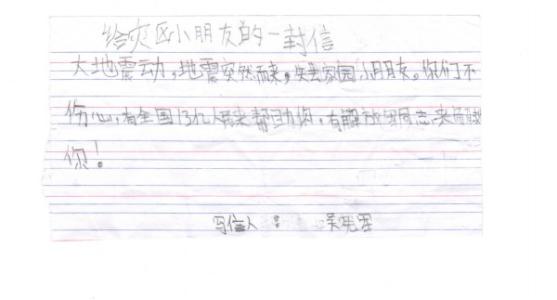 给灾区小朋友的一封信
大地震动,地震突然而来,失去家园小朋友,你们不
伤心,有全国13亿人民来帮助你,有解放军同志来解救
你!
写信人: